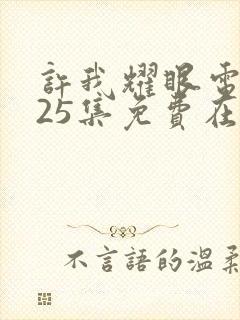 許我耀眼電
25集免費在
不言語的溫柔